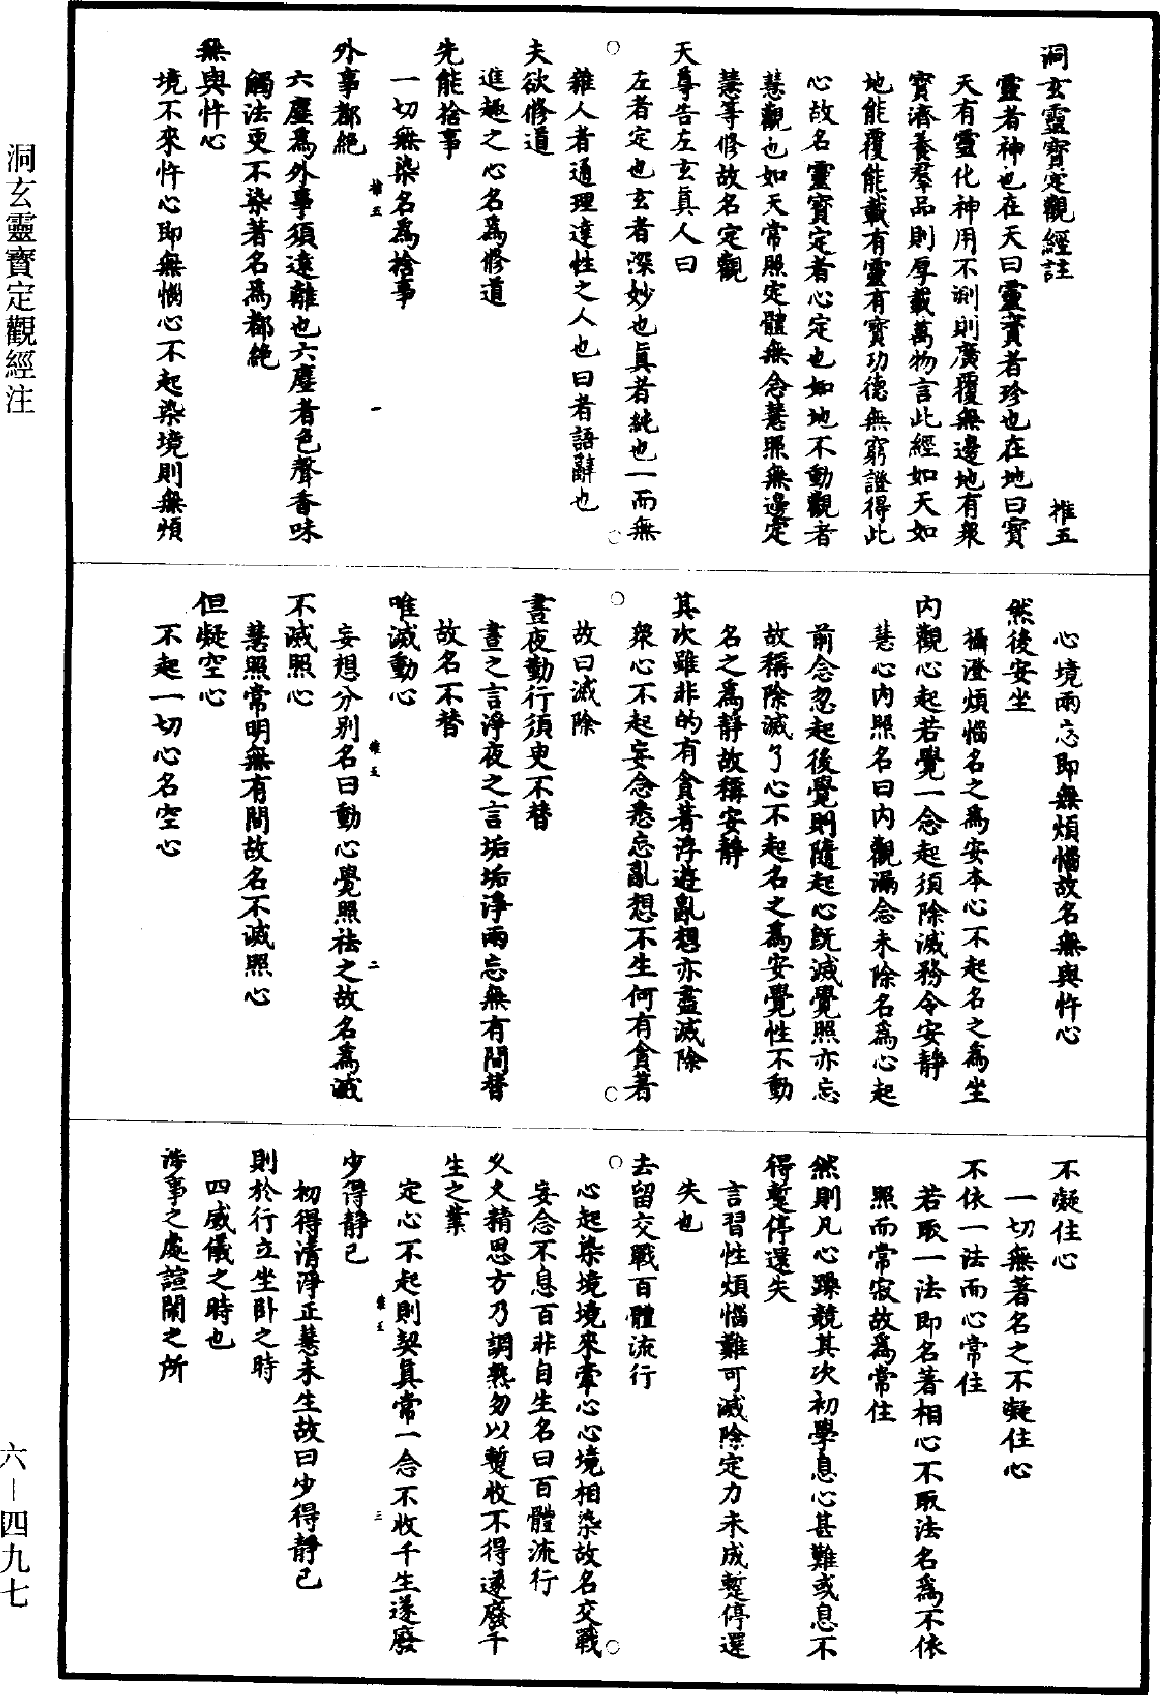 洞玄靈寶定觀經註
推五
靈者神也在天曰靈寶者珍也在地曰寶
天有靈化神用不測則廣覆無邊地有衆
寶濟養羣品則厚載萬物言此經如天如
地能覆能載有靈有寶功德無窮證得此
心故名靈寶定者心定也如地不動觀者
慧觀也如天常照定體無念慧照無邊定
慧等修故名定觀
天尊告左玄真人曰
左者定也玄者深妙也真者純也一而無
雜人者通理達性之人也曰者語辭也
夫欲修道
進趣之心名爲修道
先能捨事
一切無染名爲捨事
外事都絕
推五
一
六塵爲外事須遠離也六塵者色聲香味
觸法更不染著名爲都絕
無與忤心
境不來忤心即無惱心不起染境則無煩
心境兩忘即無煩惱故名無與忤心
然後安坐
攝澄煩惱名之爲安本心不起名之爲坐
內觀心起若覺一念起須除滅務令安靜
慧心內照名曰內觀漏念未除名爲心起
前念忽起後覺則隨起心既滅覺照亦忘
故稱除滅了心不起名之爲安覺性不動
名之爲靜故稱安靜
其次雖非的有貪著浮遊亂想亦盡滅除
衆心不起妄念悉忘亂想不生何有貪著
故曰滅除
晝夜勤行須臾不替
晝之言淨夜之言垢垢淨兩忘無有間替
故名不替
唯滅動心
推五
二
妄想分別名曰動心覺照祛之故名爲滅
不滅照心
慧照常明無有間故名不滅照心
但凝空心
不起一切心名空心
不凝住心
一切無著名之不凝住心
不依一法而心常住
若取一法即名著相心不取法名爲不依
照而常寂故爲常住
然則凡心躁競其次初學息心甚難或息不
得蹔停還失
言習性煩惱難可滅除定力未成蹔停還
失也
去留交戰百體流行
心起染境境來牽心心境相染故名交戰
妄念不息百非自生名曰百體流行
乆乆精思方乃調熟勿以蹔收不得遂廢千
生之業
定心不起則契真常一念不收千生遂廢
少得靜已
推五
三
初得清淨正慧未生故曰少得靜已
則於行立坐臥之時
四威儀之時也
涉事之處諠鬧之所
洞玄靈寶定觀經注
六—四九七